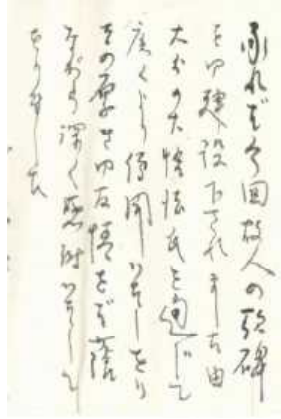 承れば今回故人の歌碑
を御建設下されました由
大分の大悟法氏を通じて
廣くより傳聞いたしをり
その厚き御友情をば蔭
ながら深く感謝いたして
をりました